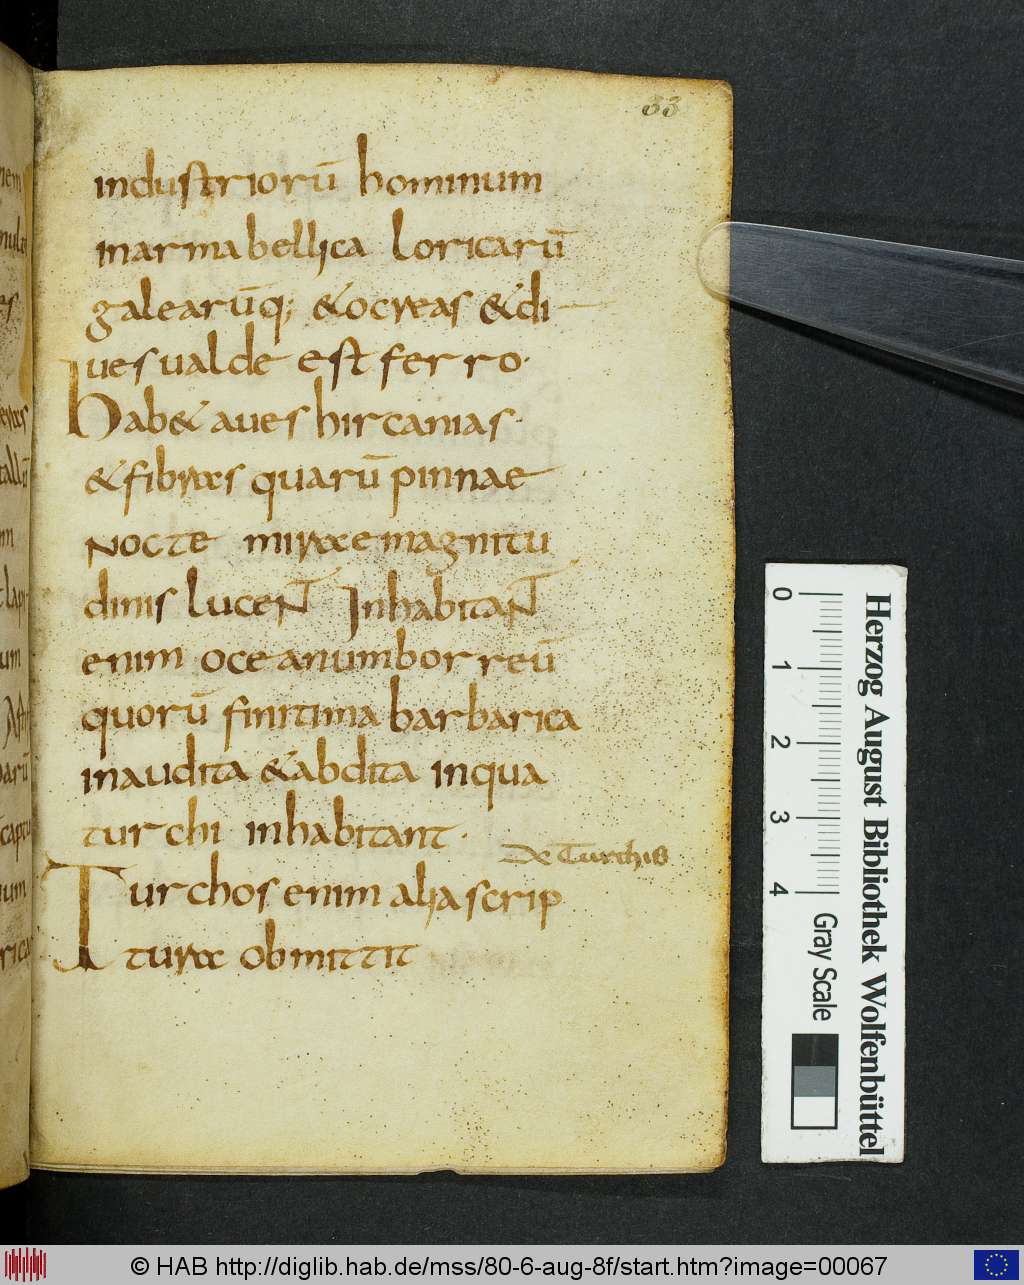 33
industriorū hominum
inarma bellica loricarū
galearūq; &ocreas &di
ues ualde est ferro·
hab& aues hircanias·
&fibras quarū pinnae
nocte mirae magnitu
dinis lucent Inhabitant
enim oceanum borreū
quorū finitima barbarica
inaudita &abdita inqua
turchi inhabitant·
De Turchis
Turchos enim alia scrip
tura obmittit
0 1 2 3 4
Gray Scale
Herzog August Bibliothek Wolfenbüttel
© HAB http://diglib.hab.de/mss/80-6-aug-8f/start.htm?image=00067